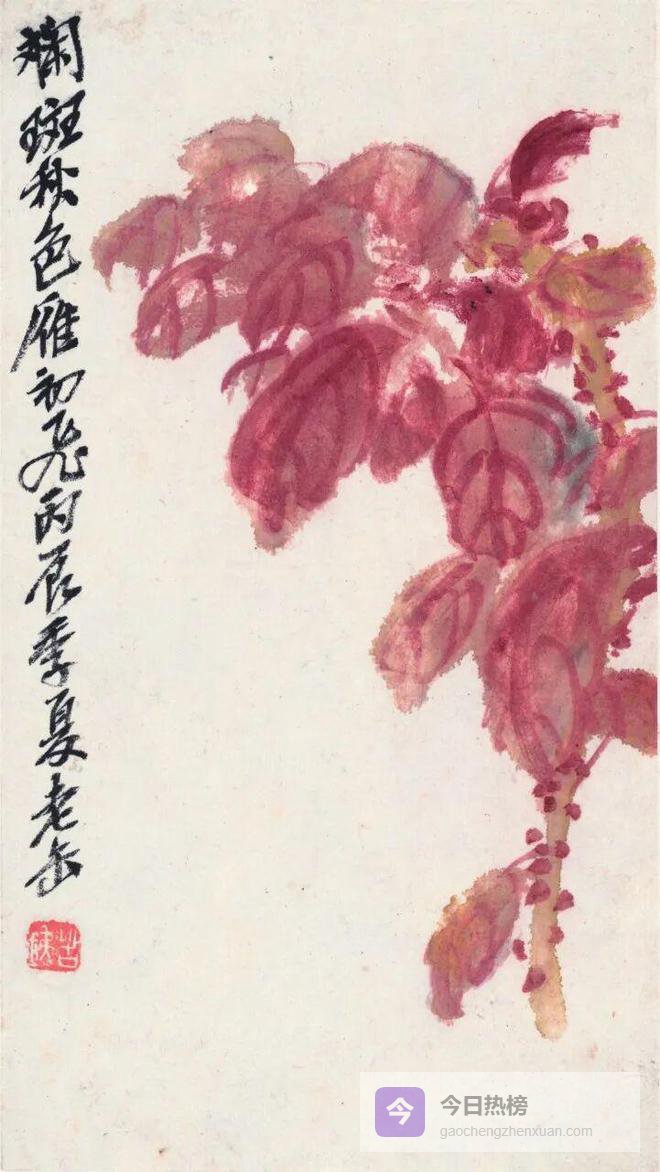 斓斑秋色雁初飞丙辰季夏老缶
苦铁
今日热榜
gaochengzhenxuan.com